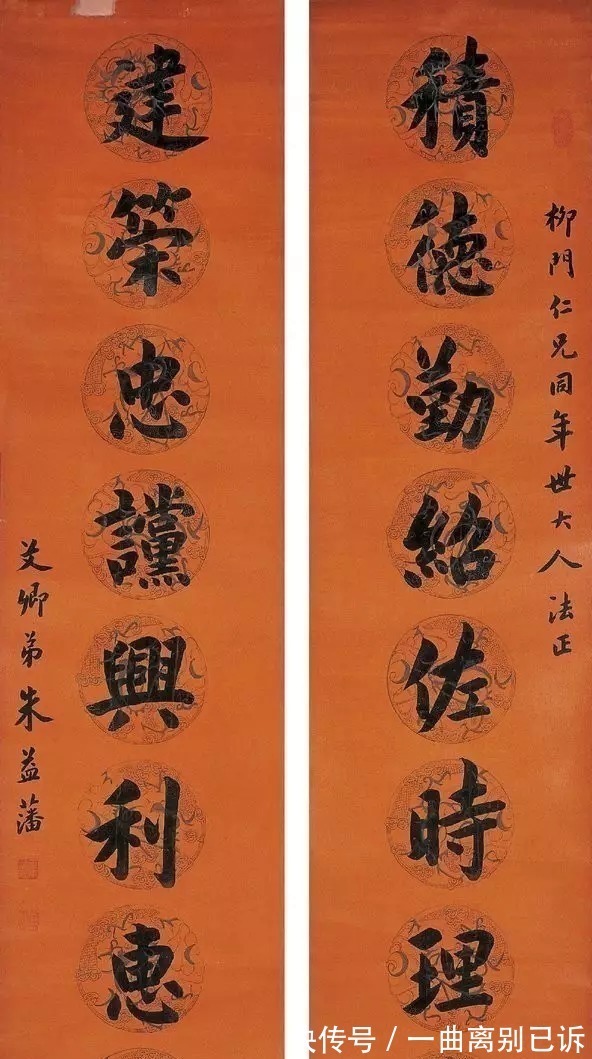 柳門仁兄同年世大人法正
積德勤紹佐時理
建策忠讜興利惠
艾卿弟朱益藩
快传号 / 一曲离别已诉